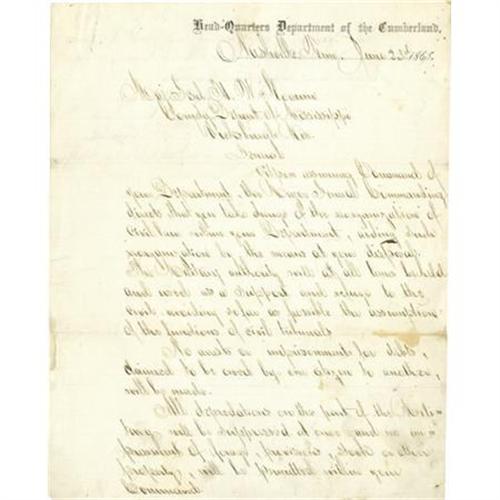 Head-Quarters Department of the Cumberland.
Nashville, Tenn. June 23d 1865.
Maj Genl
Comdg Depart of Mississippi
Vicksburgh Miss.
General
Upon assuming Command of
your Department, the Major General Commanding
directs that you take charge of the reorganization of
Civil Law within your Department, aiding such
reorganization by the means at your disposal.
The Military authority will at all times be held
and used as a support and refuge to the
civil avoiding so far as possible the assumption
of the functions of civil tribunals
No arrests or imprisonments for debts,
claimed to be owed by one citizen to another,
will be made.
All depredations on the part of the
will be suppressed at once and no im-
pressment of forage, provisions, stock or other
property, will be permitted within your
Command.